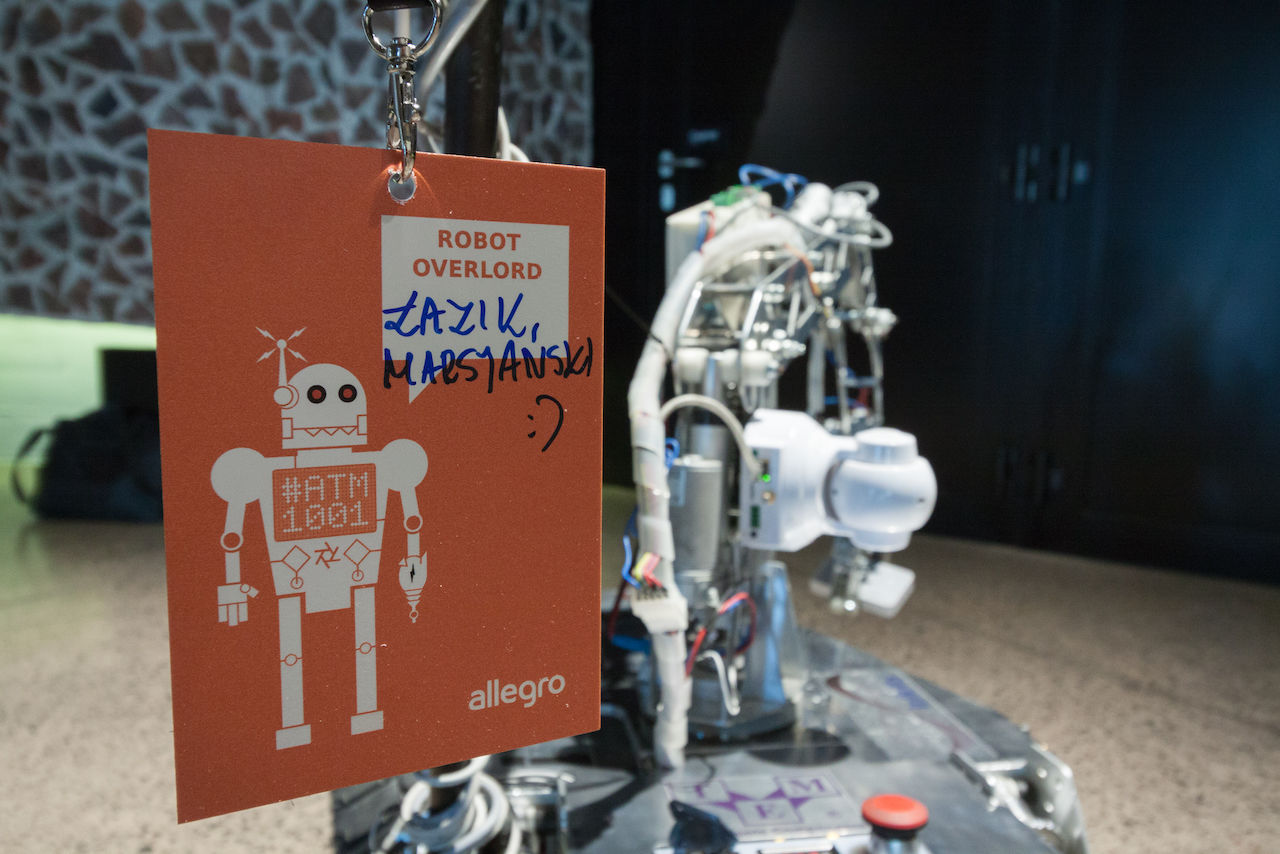 ROBOT
OVERLORD
ŁAZIK,
MARSJAŃSKI
:)
#ATM
1001
allegro
M
E